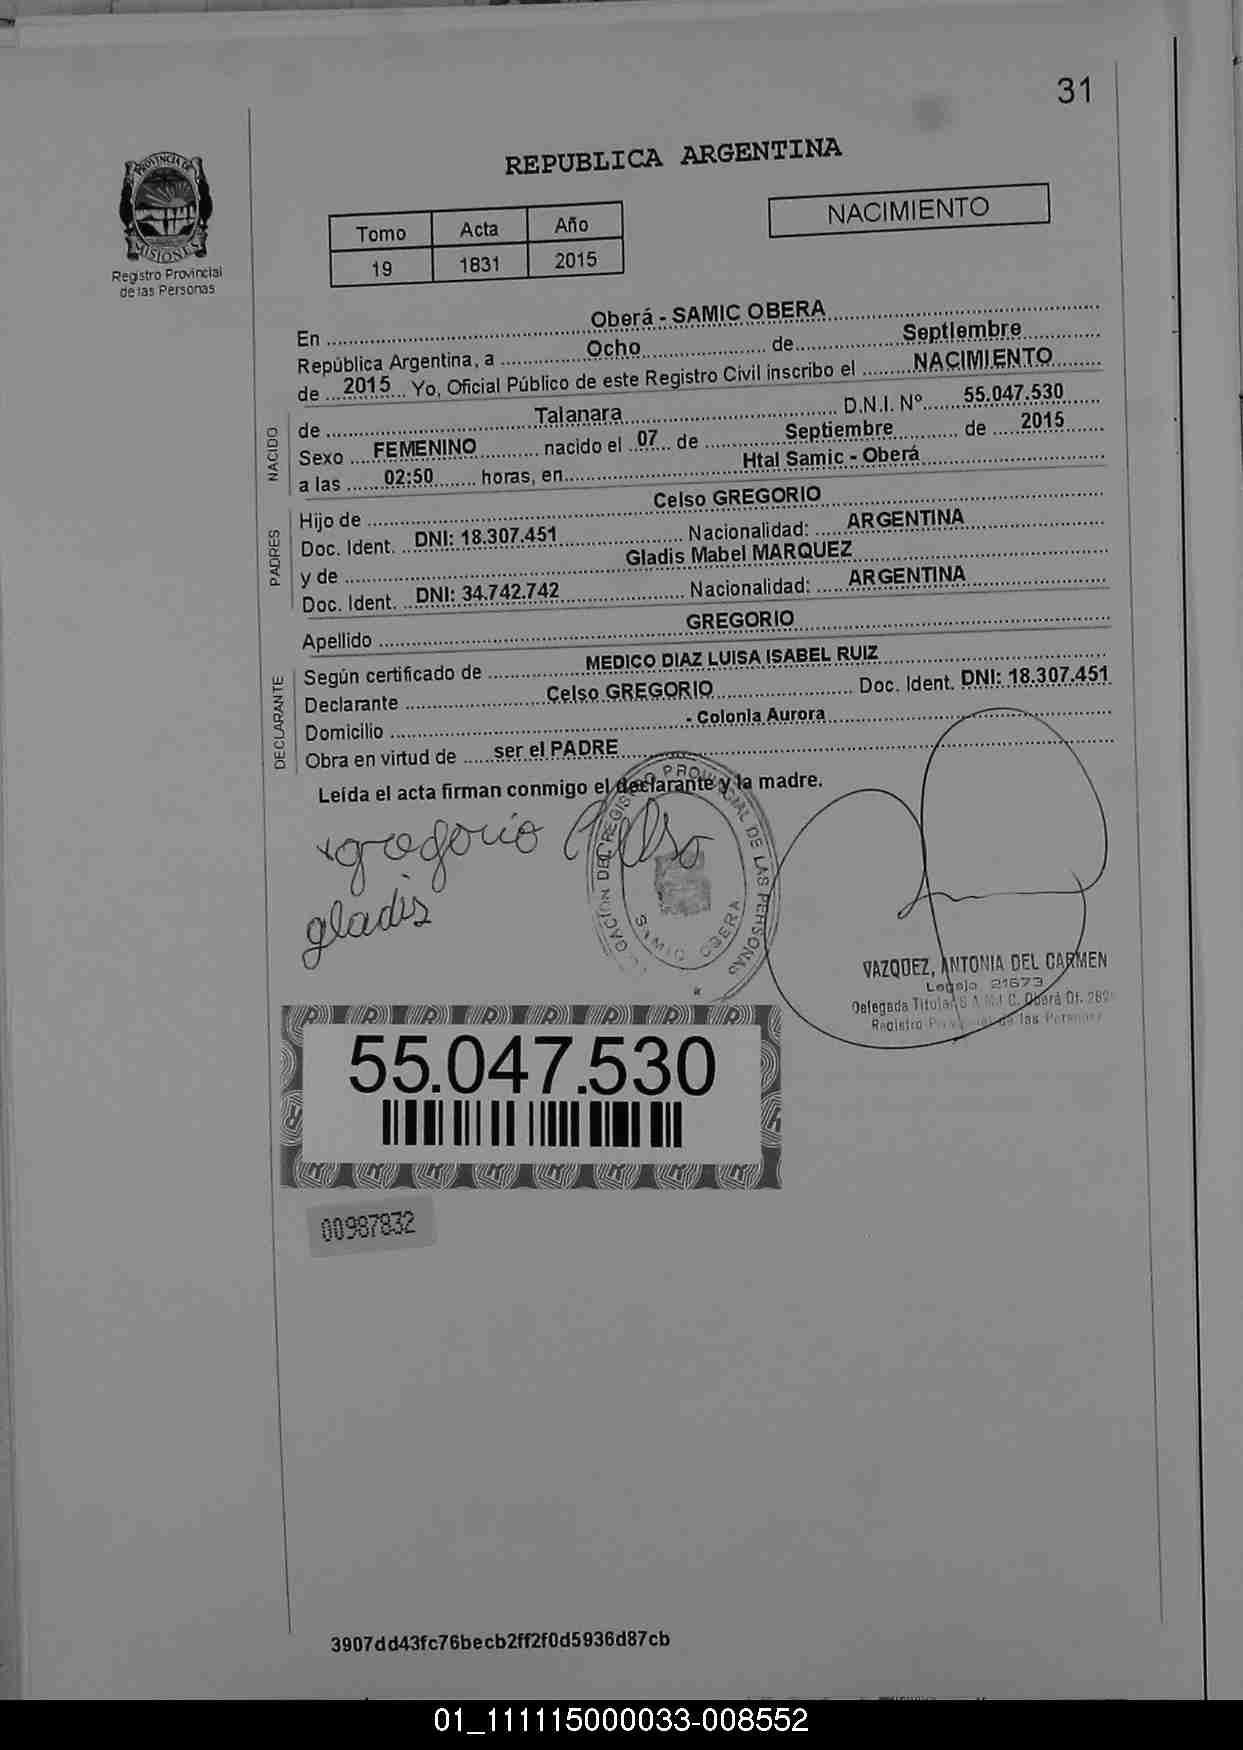 31
REPUBLICA ARGENTINA
PROVINCIA DE
MISIONES
Registro Provincial
de las Personas
Tomo Acta Año
19 1831 2015
NACIMIENTO
En Oberá - SAMIC OBERA
República Argentina, a Ocho de Septiembre
de 2015 Yo, Oficial Público de este Registro Civil inscribo el NACIMIENTO
NACIDO
de Taianara D.N.I. Nº 55.047.530
Sexo FEMENINO nacido el 07 de Septiembre de 2015
a las 02:50 horas, en Htal Samic - Oberá
PADRES
Hijo de Celso GREGORIO
Doc. Ident. DNI: 18.307.451 Nacionalidad: ARGENTINA
y de Gladis Mabel MARQUEZ
Doc. Ident. DNI: 34.742.742 Nacionalidad: ARGENTINA
Apellido GREGORIO
DECLARANTE
Según certificado de MEDICO DIAZ LUISA ISABEL RUIZ
Declarante Celso GREGORIO Doc. Ident. DNI: 18.307.451
Domicilio - Colonia Aurora
Obra en virtud de ser el PADRE
Leída el acta firman conmigo el declarante y la madre.
gregorio Celso
gladis
DEL REGISTRO PROVINCIAL DE LAS PERSONAS
SAMIC OBERA
VAZQUEZ, ANTONIA DEL CARMEN
Legajo 21673
Delegada Titular S.A.M.I.C. Oberá Of.
Registro Provincial de las Personas
55.047.530
00987832
3907dd43fc76becb2ff2f0d5936d87cb
01_111115000033-008552